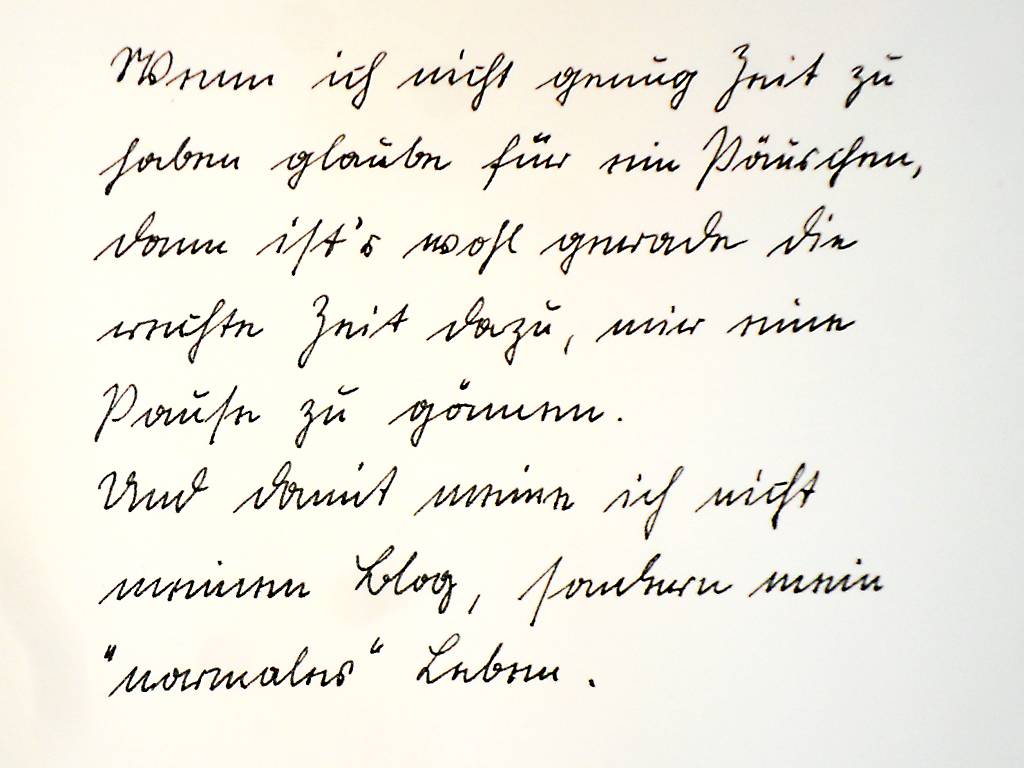 Wenn ich nicht genug Zeit zu
haben glaube für ein Päuschen,
dann ist's wohl gerade die
rechte Zeit dazu, mir eine
Pause zu gönnen.
Und damit meine ich nicht
meinen Blog, sondern mein
"normales" Leben.